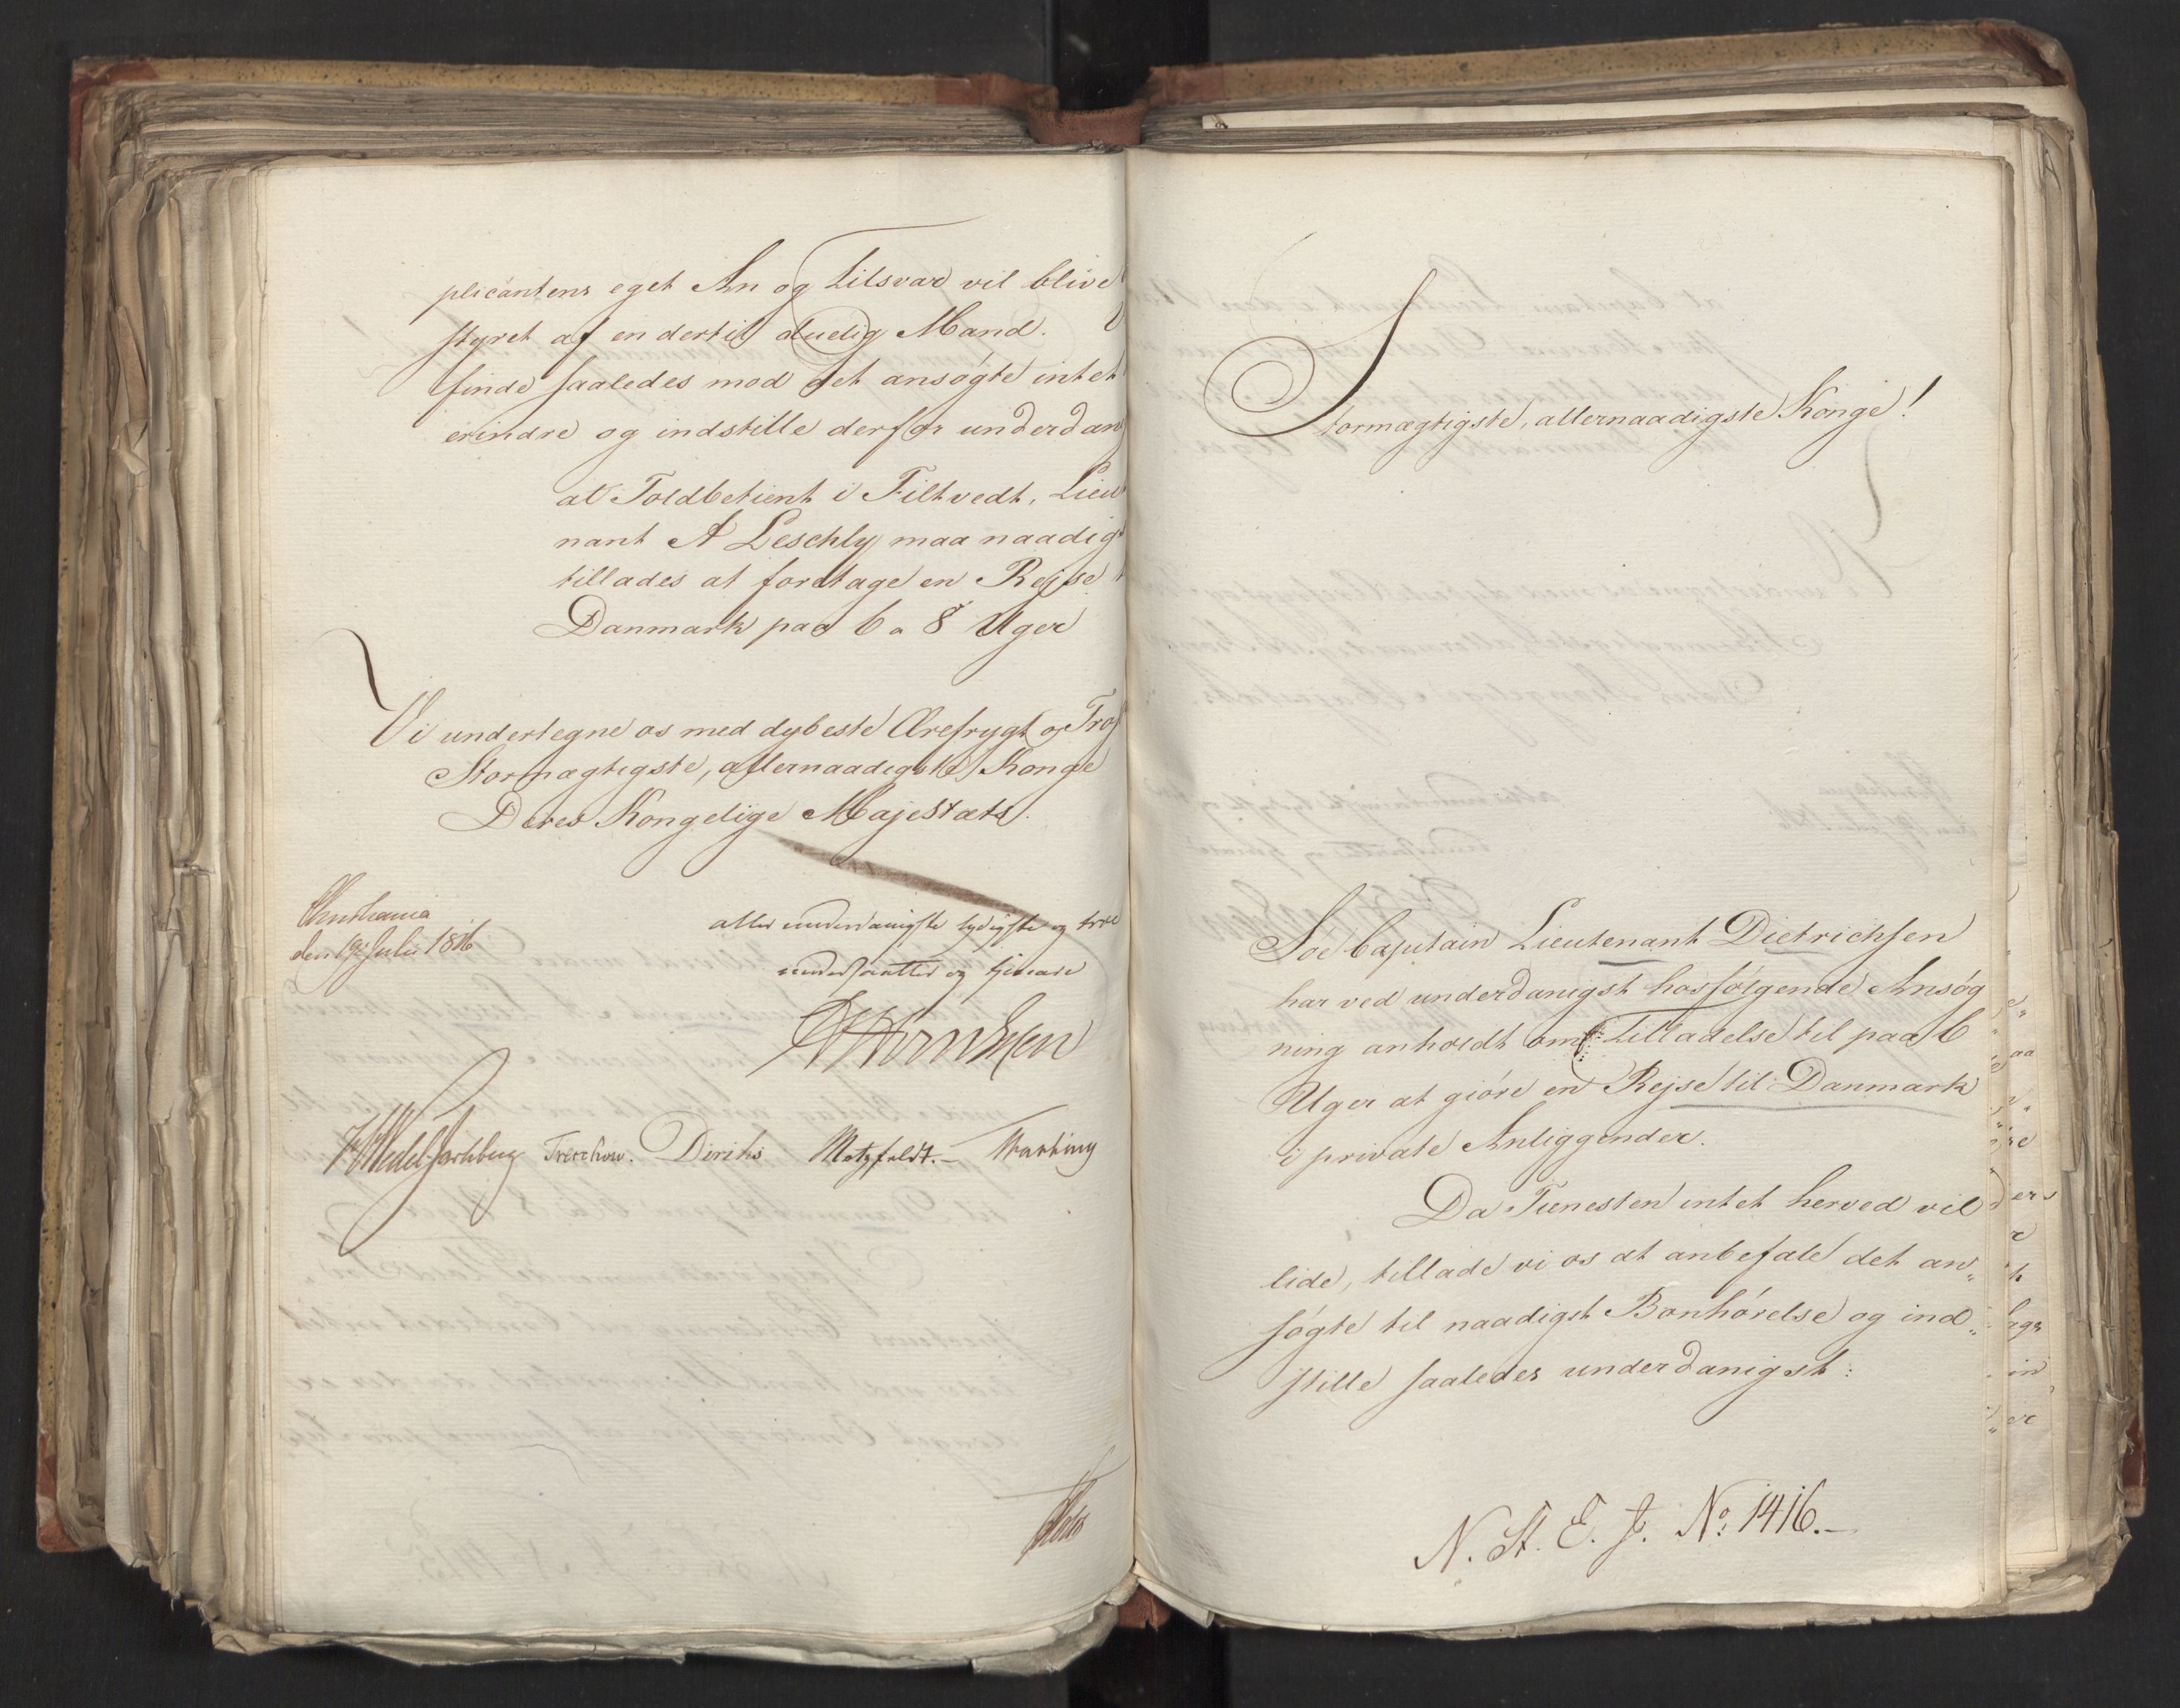 plicantens eget An og Tilsvar vil blive
styret af en dertil duelig Mand.
finde saaledes mod det ansøgte intet
erindre og indstille derfor underdan
at Toldbetient i Filtvedt, Lieu
nant A Leschly maa naadigs
tillades at foretage en Rejse
Danmark paa 6 a 8 Uger
Vi undertegne os med dybeste Ærefrygt og Tro
Stormægtigste, allernaadigste Konge
Deres Kongelige Majestæts.
Christiania
den 19 Julii 1816
aller underdanigste lydigste og troe
undersaatter og tjenere
Treschow. Diriks Motzfeldt.
Stormægtigste, allernaadigste Konge!
Søe Capitain Lieutenant Dietrichsen
har ved underdanigst hosfølgende Ansøg
ning anholdt om Tilladelse til paa 6
Uger at giöre en Rejse til Danmark
i private Anliggender.
Da Tienesten intet herved vil
lide, tillade vi os at anbefale det an„
søgte til naadigst Bønhørelse og ind„
stille saaledes underdanigst:
N. St. E. J. No. 1416.